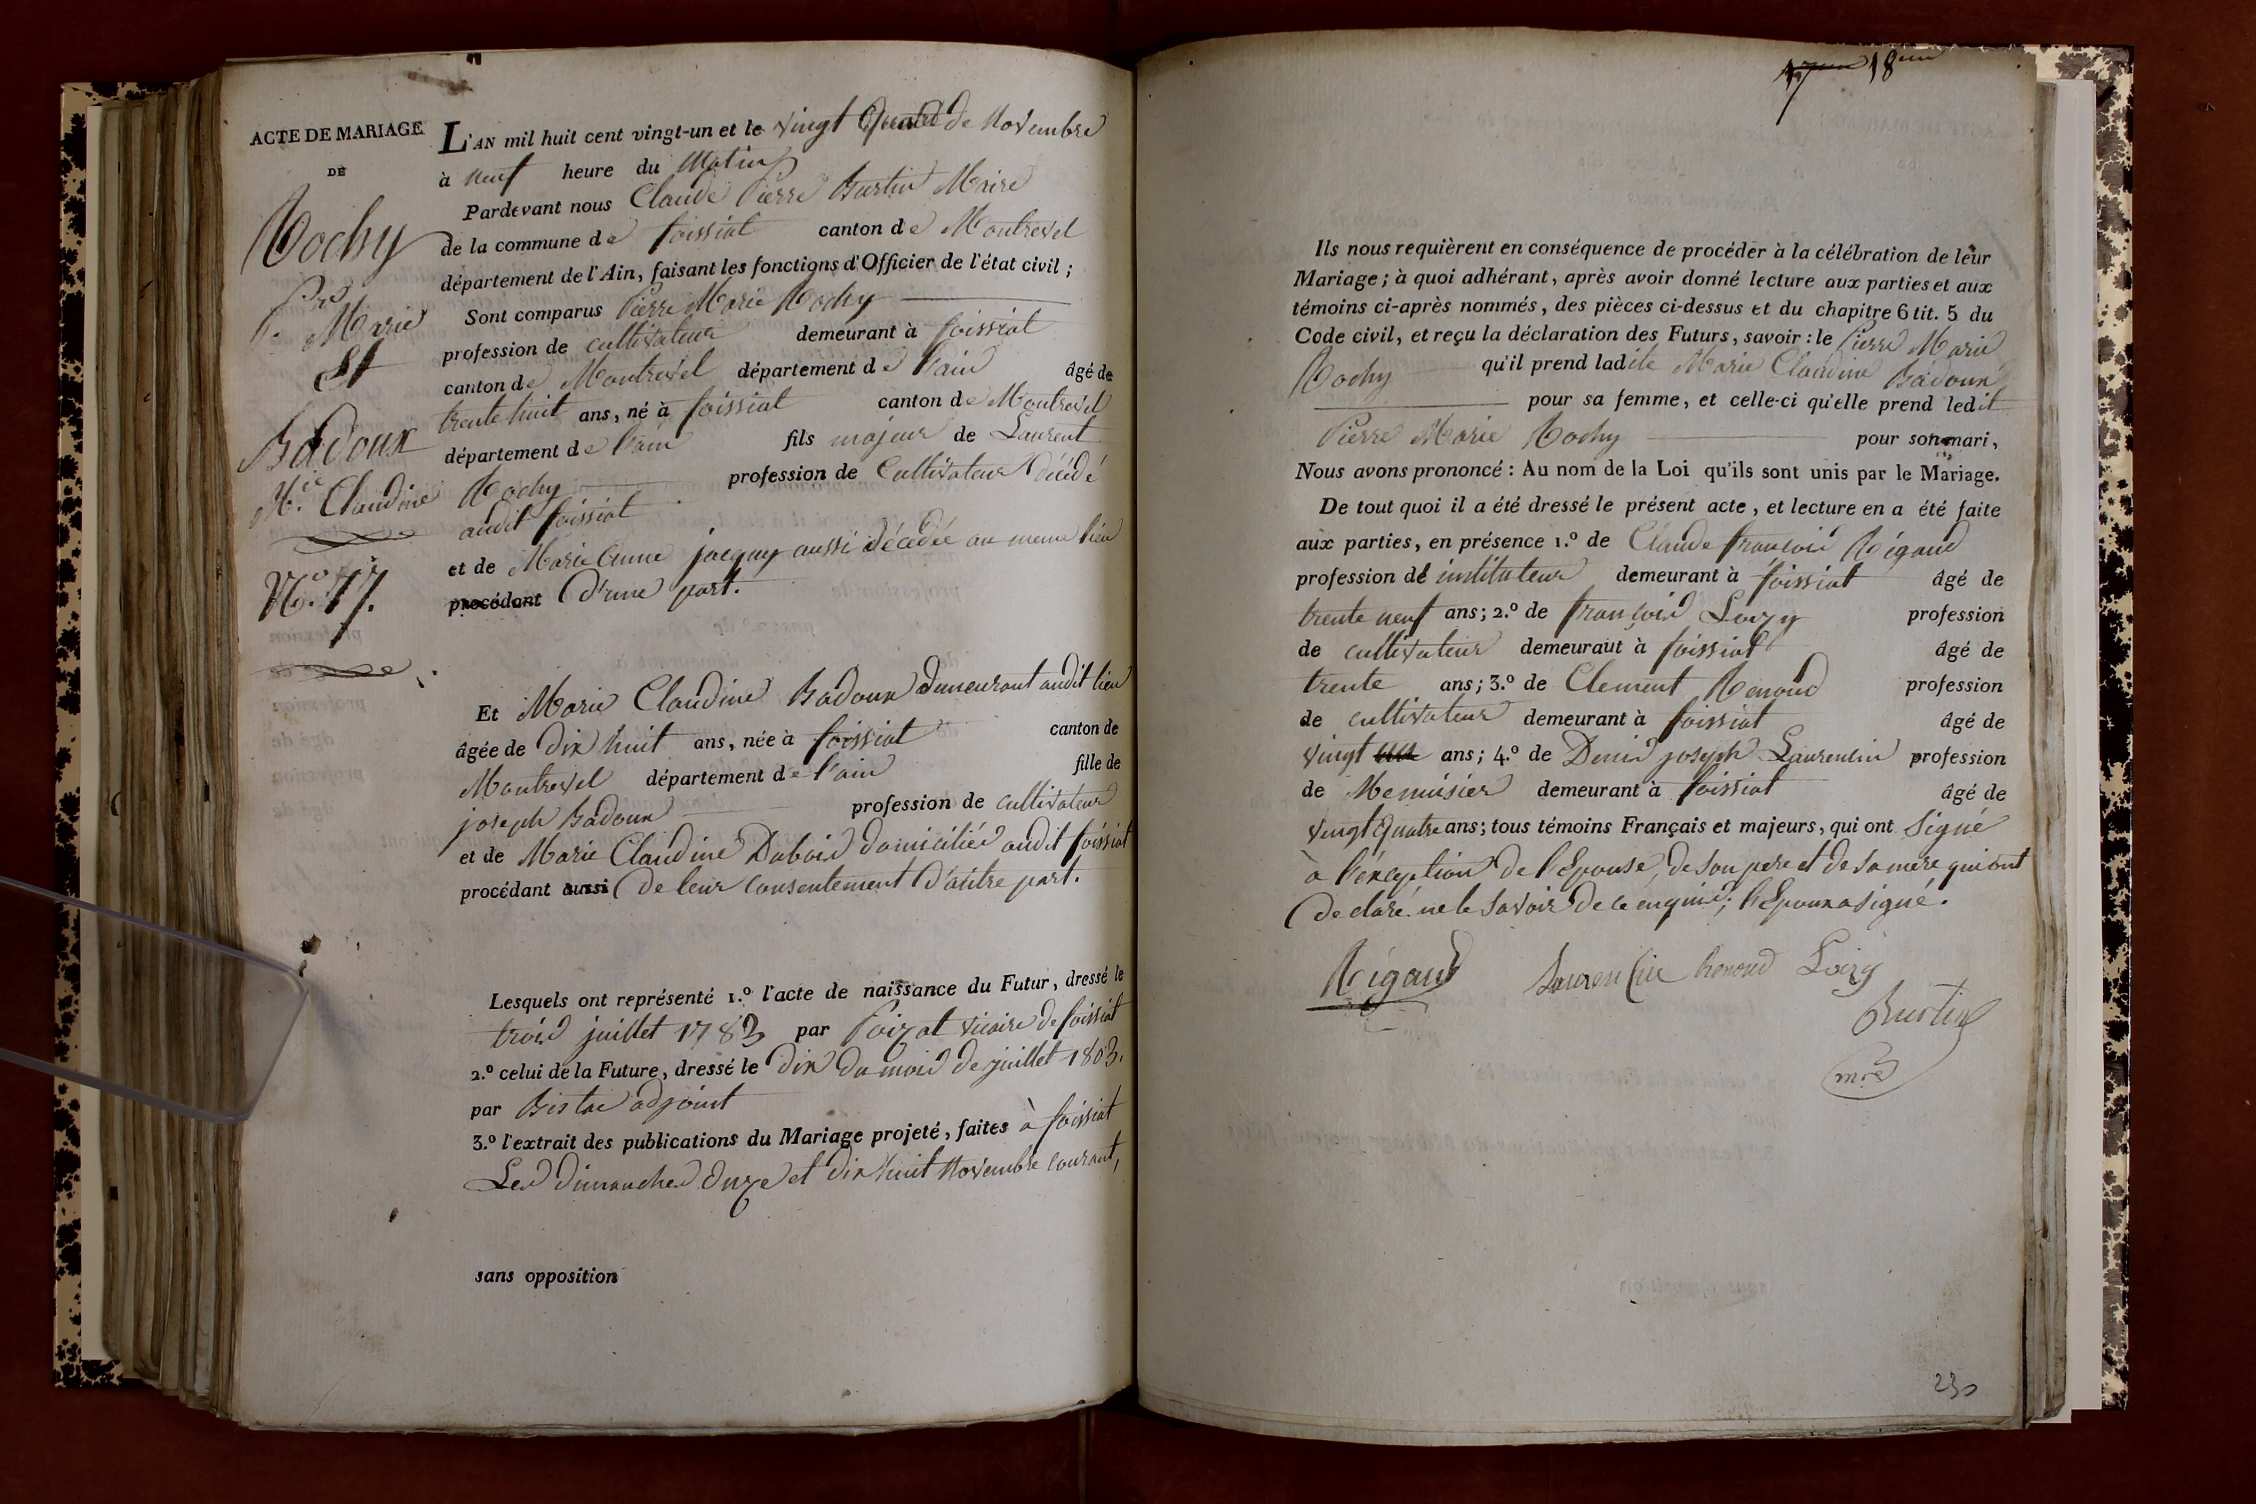 ACTE DE MARIAGE
DE
Rochy
P.re Marie
Et
Badoux
M.ie Claudine
N.o 17.
L'AN mil huit cent vingt-un et le vingt de Novembre
à neuf heure du Matin
Pardevant nous Claude Pierre Burtin Maire
de la commune de foissiat canton de Montrevel
département de l'Ain, faisant les fonctions d'Officier de l'état civil ;
Sont comparus Pierre Marie Rochy
profession de cultivateur demeurant à foissiat
canton de Montrevel département de l'ain âgé de
trente huit ans, né à foissiat canton de Montrevel
département de l'ain fils majeur de Laurent
Rochy profession de Cultivateur décédé
audit foissiat
et de Marie Anne jacquy aussi décédée au meme lieu
procédant d'une part.
Et Marie Claudine Badoux demeurant audit lieu
âgée de dix huit ans, née à foissiat canton de
Montrevel département de l'ain fille de
joseph Badoux profession de cultivateur
et de Marie Claudine Dubois domiciliés audit foissiat
procédant aussi de leur consentement d'autre part.
Lesquels ont représenté 1.o l'acte de naissance du Futur, dressé le
trois juillet 1783 par Poizat vicaire de foissiat
2.o celui de la Future, dressé le dix du mois de juillet 1803.
par adjoint
3.o l'extrait des publications du Mariage projeté, faites à foissiat
Les dimanches onze et dix huit Novembre courant,
sans opposition
17me 18me
Ils nous requièrent en conséquence de procéder à la célébration de leur
Mariage ; à quoi adhérant, après avoir donné lecture aux parties et aux
témoins ci-après nommés, des pièces ci-dessus et du chapitre 6 tit. 5 du
Code civil, et reçu la déclaration des Futurs, savoir : le Pierre Marie
Rochy qu'il prend ladite Marie Claudine Badoux
pour sa femme, et celle-ci qu'elle prend ledit
Pierre Marie Rochy pour son mari,
Nous avons prononcé : Au nom de la Loi qu'ils sont unis par le Mariage.
De tout quoi il a été dressé le présent acte, et lecture en a été faite
aux parties, en présence 1.o de Claude françois Rigaud
profession de instituteur demeurant à foissiat âgé de
trente neuf ans ; 2.o de françois Loizy profession
de cultivateur demeurant à foissiat âgé de
trente ans ; 3.o de Clement Renoud profession
de cultivateur demeurant à foissiat âgé de
vingt ans ; 4.o de Denis joseph Laurencin profession
de Menuisier demeurant à foissiat âgé de
vingt quatre ans ; tous témoins Français et majeurs, qui ont signé
à l'exception de l'Epouse, de son pere et de sa mere qui ont
declaré ne le savoir de ce enquis ; l'Epoux a signé.
Rigaud Laurencin Renoud Loizy
Burtin
m.re
230